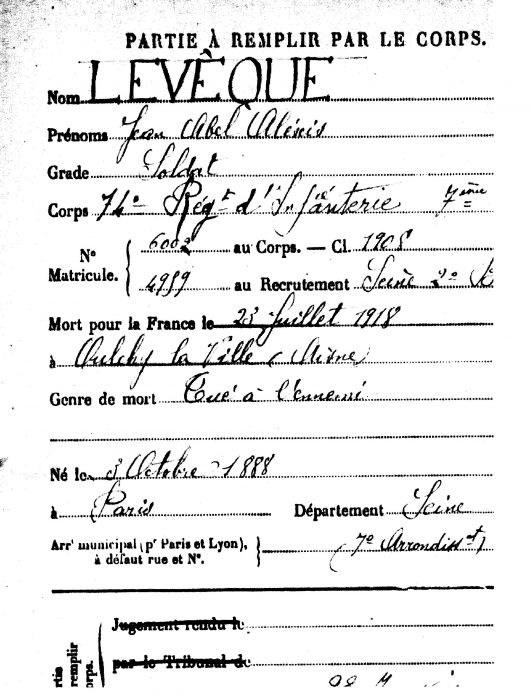 PARTIE À REMPLIR PAR LE CORPS.
Nom LEVÊQUE
Prénoms Jean Abel Alexis
Grade Soldat
Corps 74e Régt d'Infanterie 7ème
N° Matricule. 6002 au Corps. — Cl. 1908
4959 au Recrutement Seine 2e
Mort pour la France le 23 Juillet 1918
à Oulchy la Ville (Aisne)
Genre de mort Tué à l'ennemi
Né le 3 Octobre 1888
à Paris Département Seine
Arrt municipal (pr Paris et Lyon), (7e Arrondisst)
à défaut rue et N°.
Jugement rendu le
par le Tribunal de
remplir